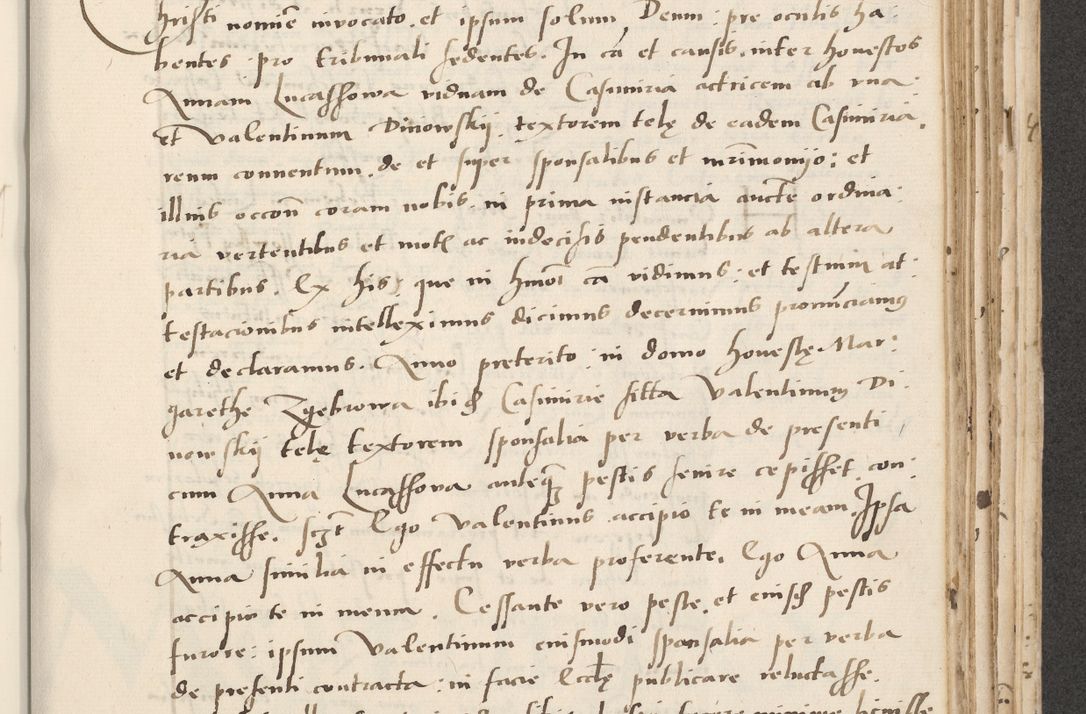 hristi nomīe invocato, et ipsum solum Deum: pre oculis ha:
bentes: pro tribunali sedentes. In cā et causis, inter honestos
Annam Lucasshowa viduam de Casimiria actricem ab vna:
et Valentinum Diniowskij textorem telę de eadem Casimiria,
reum conuentum, de et super sponsalibus et mr̄imonijo: et
illius occoñ coram nobis, in prima instancia aucte ordina:
ria vertentibus et mot ac indecisis pendentibus ab altera
partibus. Ex his, que in hmōi cā vidimus: et testium at:
testacionibus intelleximus dicimus decernimus pronūciamus
et declaramus. Anno preterito: in domo honestę Mar:
garethe Zgebrowa ibi Casimirie sitta Valentinum Di:
niowskij telę textorem sponsalia per verba de presenti
cum Anna Lucasshova anteq pestis seuire cepisset con:
traxisse. sczt Ego Valentinus accipio te in meam. Ipsa
Anna similia in effectu verba proferente, Ego Anna
accipio te in meum. Cessante vero peste, et eius pestis
furore: ipsum Valentinum euismodi sponsalia per verba
de presenti contracta: in facie Eccłę publicare reluctasse.